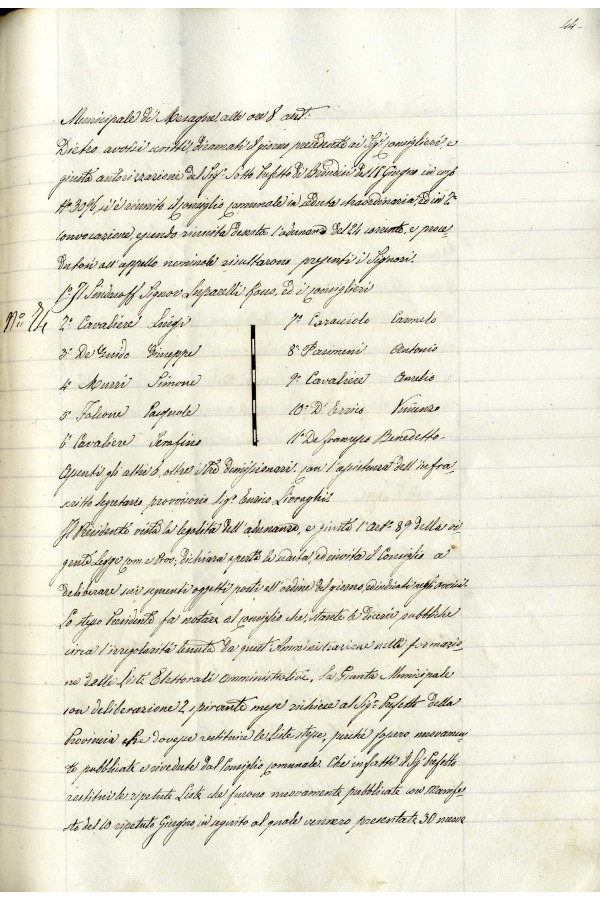 44-
Municipale di Mesagne, alle ore 8 ant:
Dietro avvisi scritti diramati il giorno precedente ai Sig.i Consiglieri, e
giusta autorizzazione del Sig. Sotto Prefetto di Brindisi del 18 Giugno in corso
si è riunito il Consiglio Comunale in seduta straordinaria, ed in 2ª
convocazione, essendo riuscita deserta l'adunanza del 24 corrente, e proce-
dutosi all'appello nominale risultarono presenti i Signori.
1º Il Sindaco ff Signor Luparelli ed i Consiglieri
Nº 74
2º Cavaliere Luigi
3º De Guido Giuseppe
4º Murri Simone
5º Falcone Pasquale
6º Cavaliere Serafino
7º Caracciolo Carmelo
8º Pasimeni Antonio
9º Cavaliere Amelio
10º D'Errico Vincenzo
11º De francesco Benedetto-
Assenti gli altri 6, oltre i tre demissionari. Con l'assistenza dell'infra-
scritto Segretario provvisorio Sig. Enrico
Il Presidente vista la legalità dell'adunanza, e giusta l'art. 89 della vi-
gente Legge Com. e Prov. dichiara aperta la seduta, ed invita il Consiglio a
deliberare sui seguenti oggetti posti all'ordine del giorno, ed indicati negli avvisi.
Lo stesso Presidente fa notare al Consiglio che, stante le dicerie pubbliche
circa l'irregolarità tenuta da quest'Amministrazione nella formazio-
ne delle Liste Elettorali Amministrative, la Giunta Municipale
con deliberazione 2 spirante mese richiese al Sig. Prefetto della
Provincia che dovesse restituire le liste stesse, perché fossero nuovamen-
te pubblicate e rivedute dal Consiglio Comunale. Che infatti il Sig. Prefetto
restituì le ripetute Liste che furono nuovamente pubblicate con Manife-
sto del 10 ripetuto Giugno, in seguito al quale vennero presentate 30 nuove